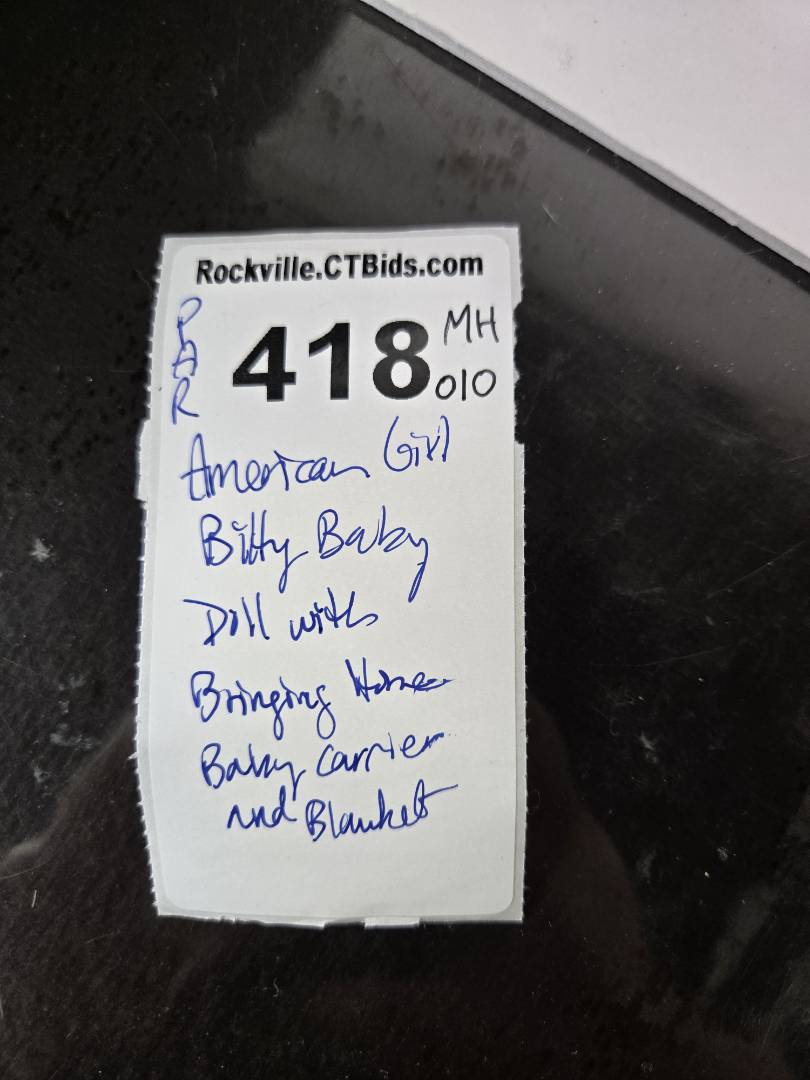 Rockville.CTBids.com
PAR
418 MH
010
American Girl
Bitty Baby
Doll with
Bringing Home
Baby Carrier
and Blanket